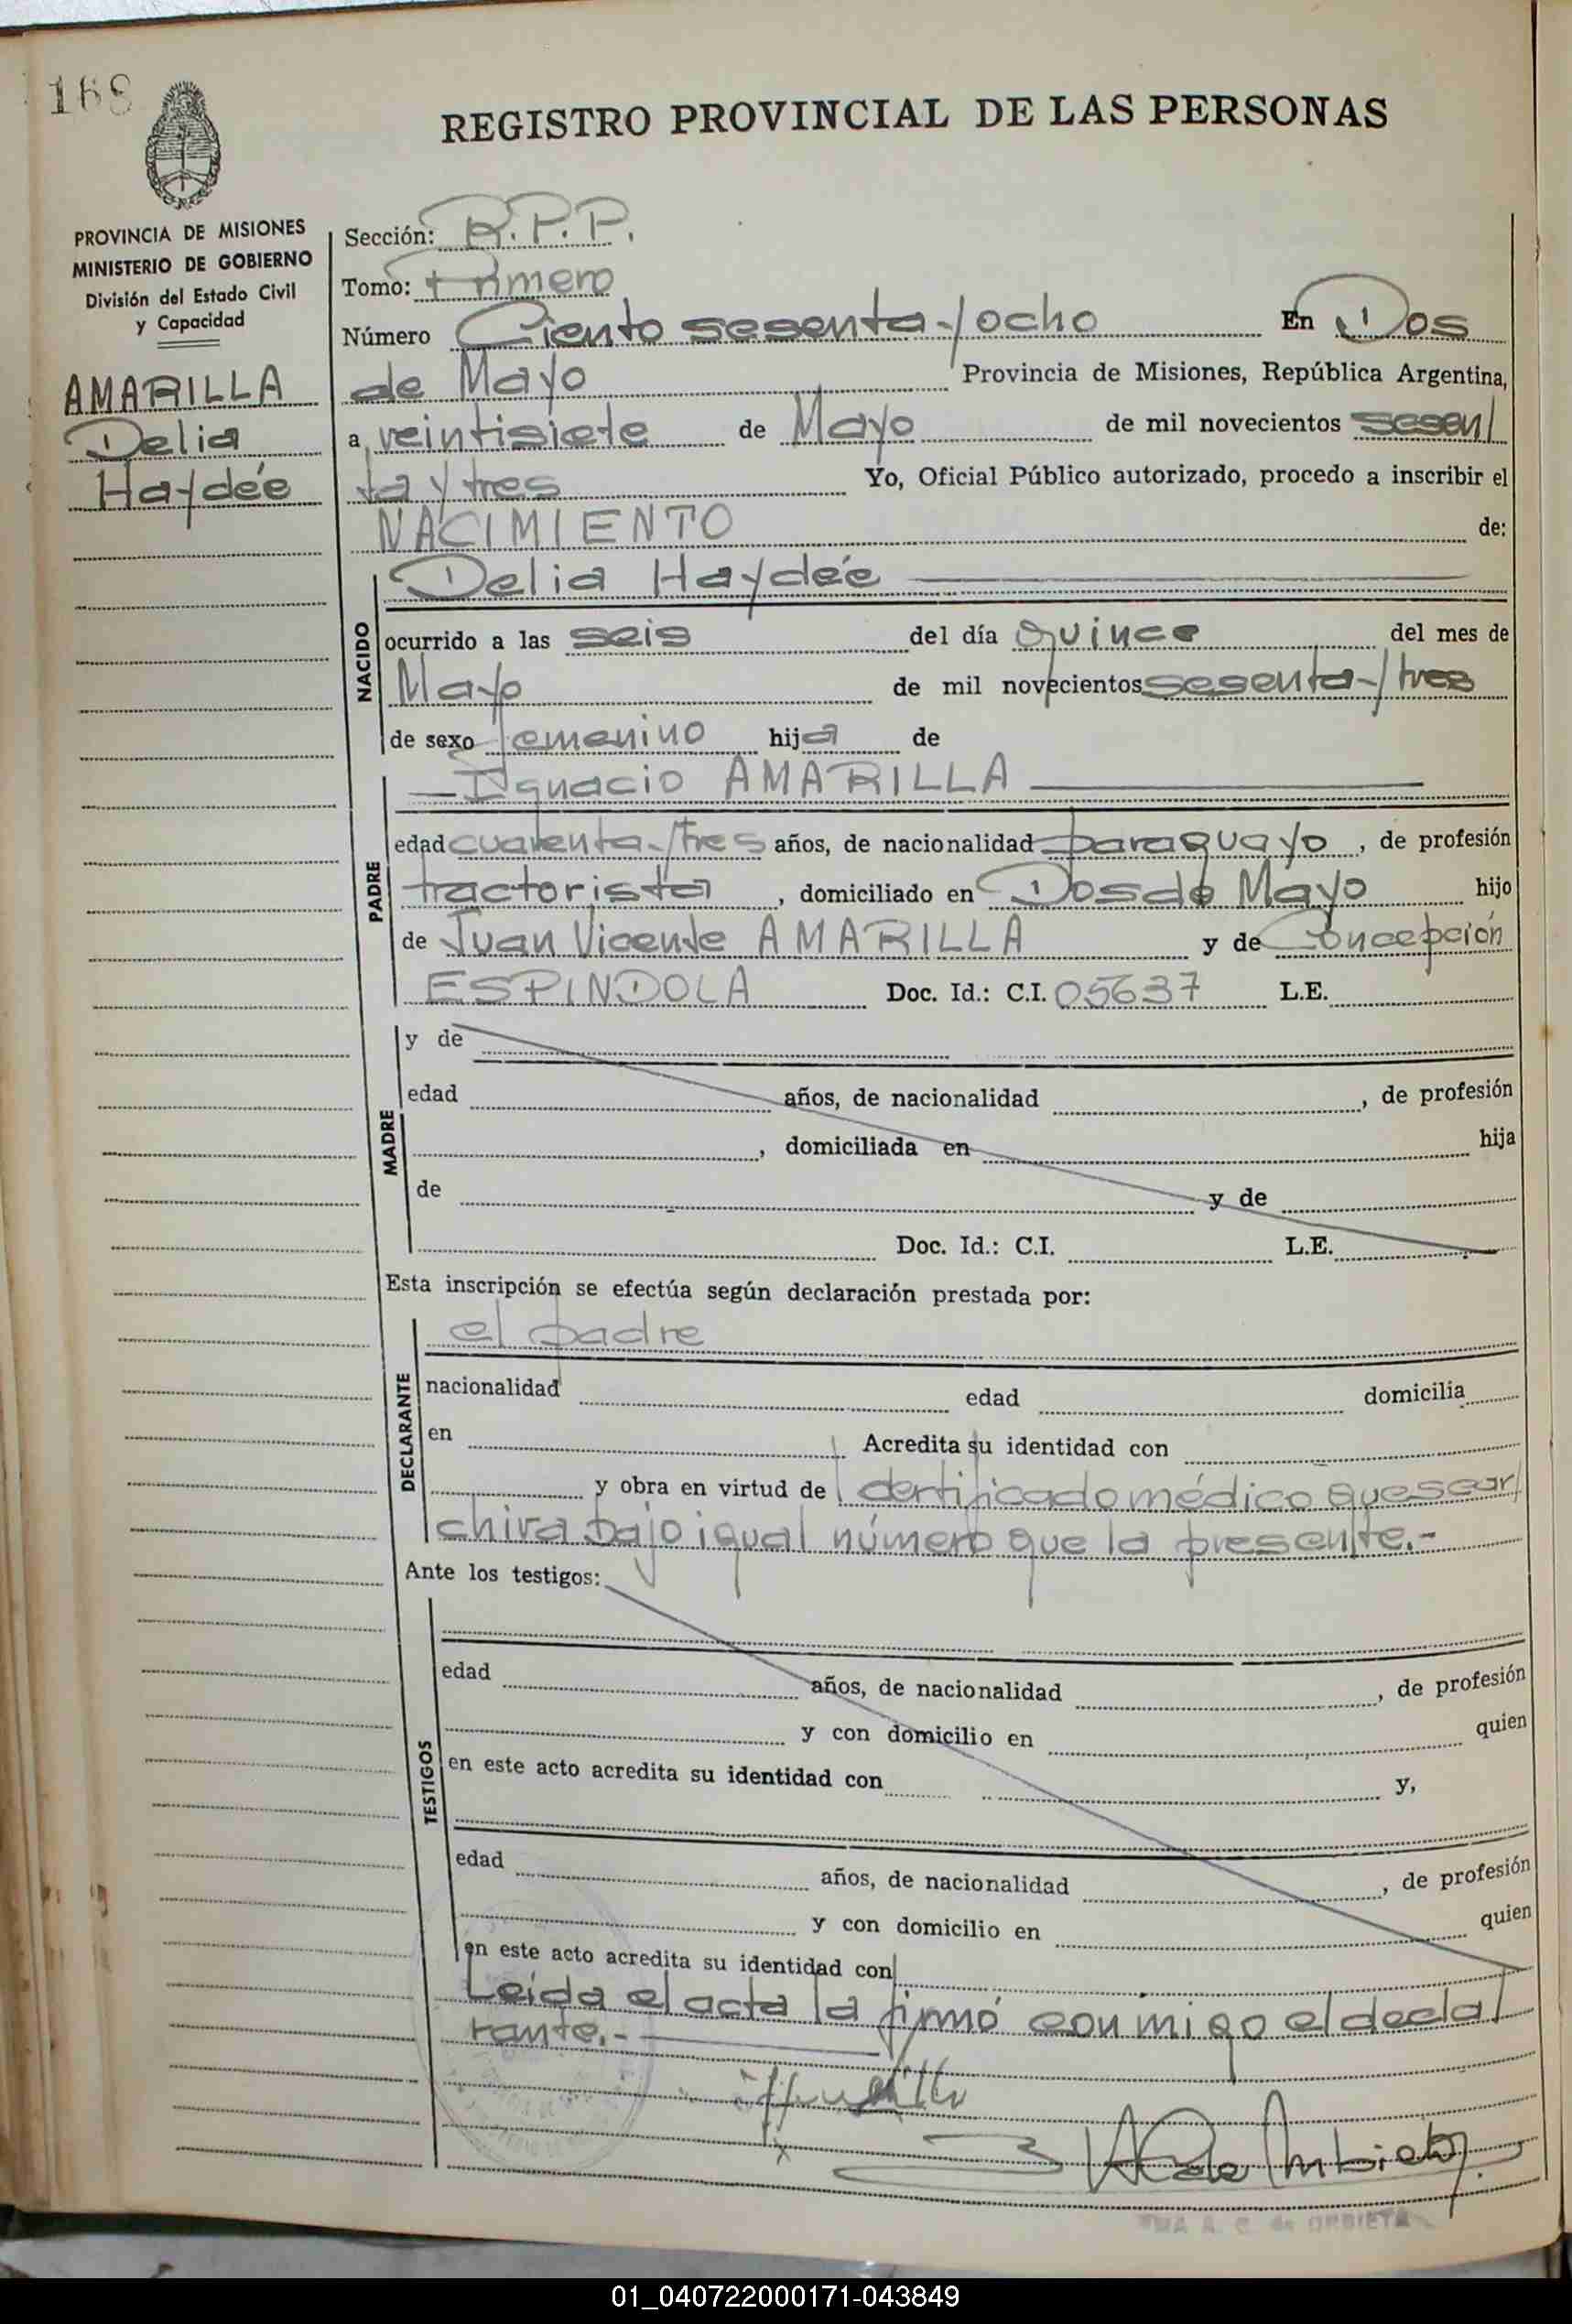 168
REGISTRO PROVINCIAL DE LAS PERSONAS
PROVINCIA DE MISIONES
MINISTERIO DE GOBIERNO
División del Estado Civil
y Capacidad
AMARILLA
Delia
Haydée
Sección: R.P.P.
Tomo: Primero
Número Ciento sesenta y ocho En Dos
de Mayo Provincia de Misiones, República Argentina,
a veintisiete de Mayo de mil novecientos sesen/
ta y tres Yo, Oficial Público autorizado, procedo a inscribir el
NACIMIENTO de:
NACIDO
Delia Haydée
ocurrido a las seis del día quince del mes de
Mayo de mil novecientos sesenta y tres
de sexo femenino hija de
PADRE
Ignacio AMARILLA
edad cuarenta y tres años, de nacionalidad paraguayo, de profesión
tractorista, domiciliado en Dos de Mayo hijo
de Juan Vicente AMARILLA y de Concepción
ESPINDOLA Doc. Id.: C.I. 05637 L.E.
MADRE
y de
edad años, de nacionalidad , de profesión
, domiciliada en hija
de y de
Doc. Id.: C.I. L.E.
Esta inscripción se efectúa según declaración prestada por:
DECLARANTE
el padre
nacionalidad edad domicilia
en Acredita su identidad con
y obra en virtud de certificado médico que se ar/
chiva bajo igual número que la presente.-
Ante los testigos:
TESTIGOS
edad años, de nacionalidad , de profesión
y con domicilio en quien
en este acto acredita su identidad con y,
edad años, de nacionalidad , de profesión
y con domicilio en quien
en este acto acredita su identidad con
Leída el acta la firmó conmigo el decla/
rante.-
A. C. de ORBIETA
01_040722000171-043849